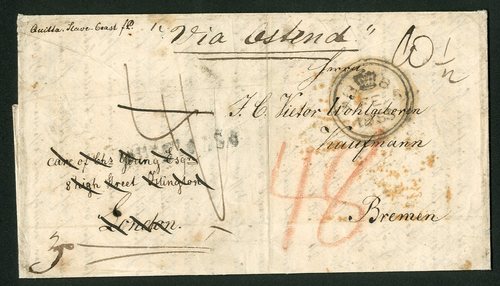 Quitta. Slave Coast
"Via Ostend"
10 1/2
Herrn
J. C. Victor Wohlgeboren
Kaufmann
Bremen
care of Chs Young Esqr
8 high Street Islington
London.
46